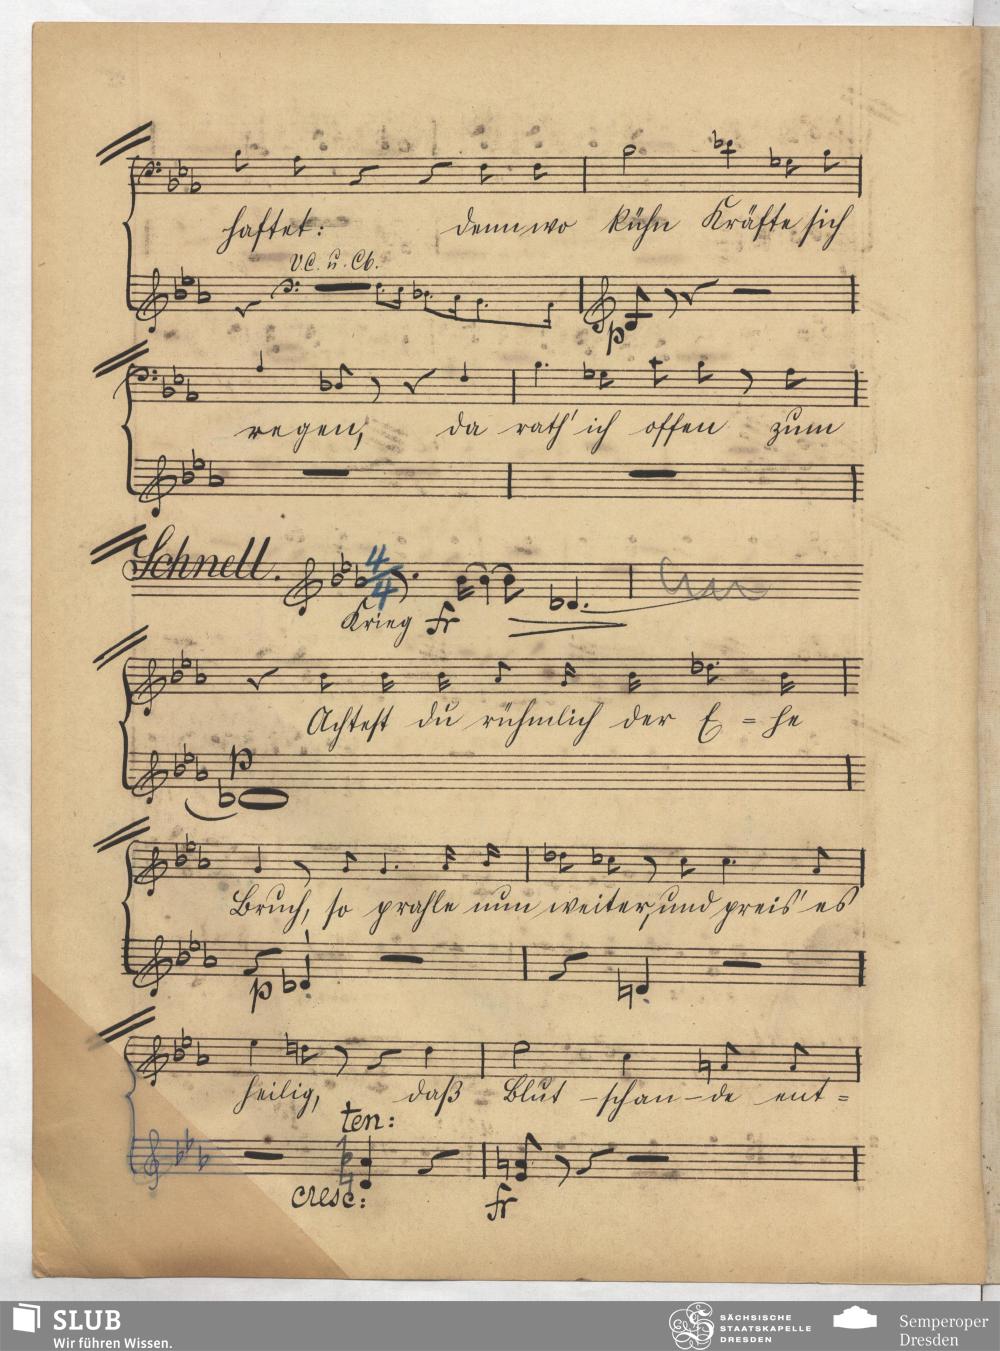 haftet: denn wo kühn Kräfte sich
Vc. u. Cb.
p
regen, da rath' ich offen zum
Schnell.
4/4
Krieg fr
Achtest du rühmlich der E = he
p
Bruch, so prahle nun weiter, und preis' es
p
heilig, daß Blut - schan - de ent =
ten:
cresc:
fr
SLUB
Wir führen Wissen.
SÄCHSISCHE
STAATSKAPELLE
DRESDEN
Semperoper
Dresden